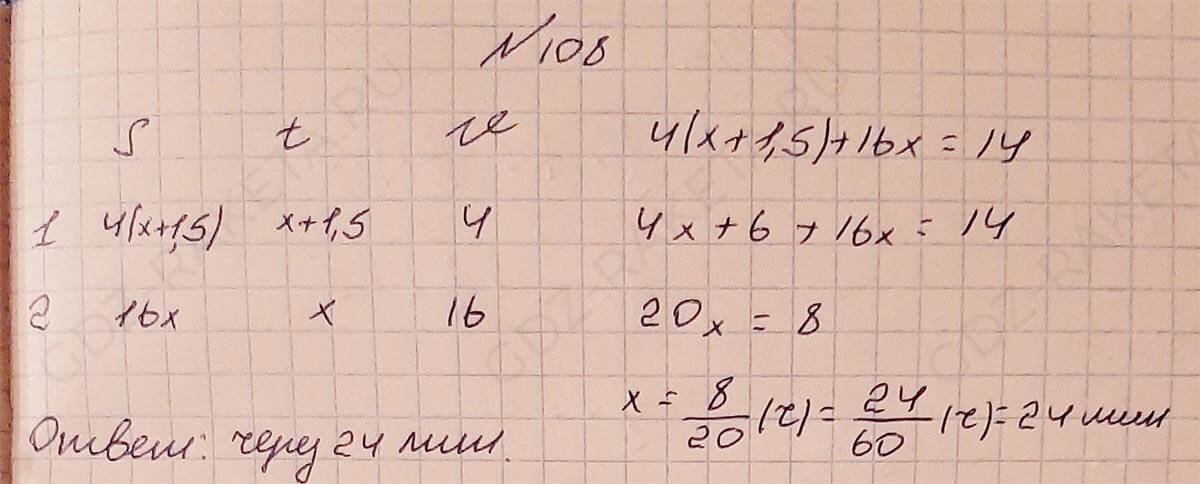 N108
S t v 4(x+1,5)+16x = 14
1 4(x+1,5) x+1,5 4 4x + 6 + 16x = 14
2 16x x 16 20x = 8
x = 8/20 (ч) = 24/60 (ч) = 24 мин
Ответ: через 24 мин.
GDZ-RAKETA.RU
GDZ-RAKETA.RU
GDZ-RAKETA.RU